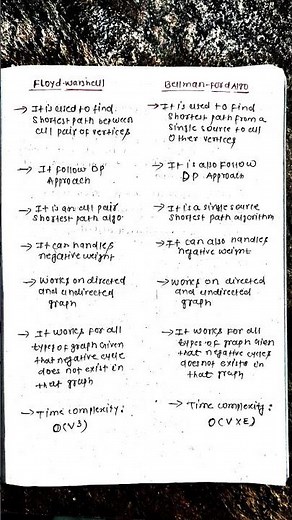 Floyd-warshell
→ It is used to find
shortest path between
all pair of vertices
→ It follow DP
Approach
→ It is an all pair
shortest path algo
→ It can handles
negative weight
→ Works on directed
and undirected
graph
→ It works for all
types of graph Given
that negative cycle
does not exist in
that graph
→ Time complexity:
O(V3)
Bellman-Ford Algo
→ It is used to find
shortest path from a
single source to all
other vertices
→ It is also Follow
DP Approach
→ It is a single source
shortest path algorithm
→ It can also handles
negative weight
→ Works on directed
and undirected
graph
→ It works for all
types of graph Given
that negative cycles
does not exists in
that graph
→ Time complexity:
O(V×E)